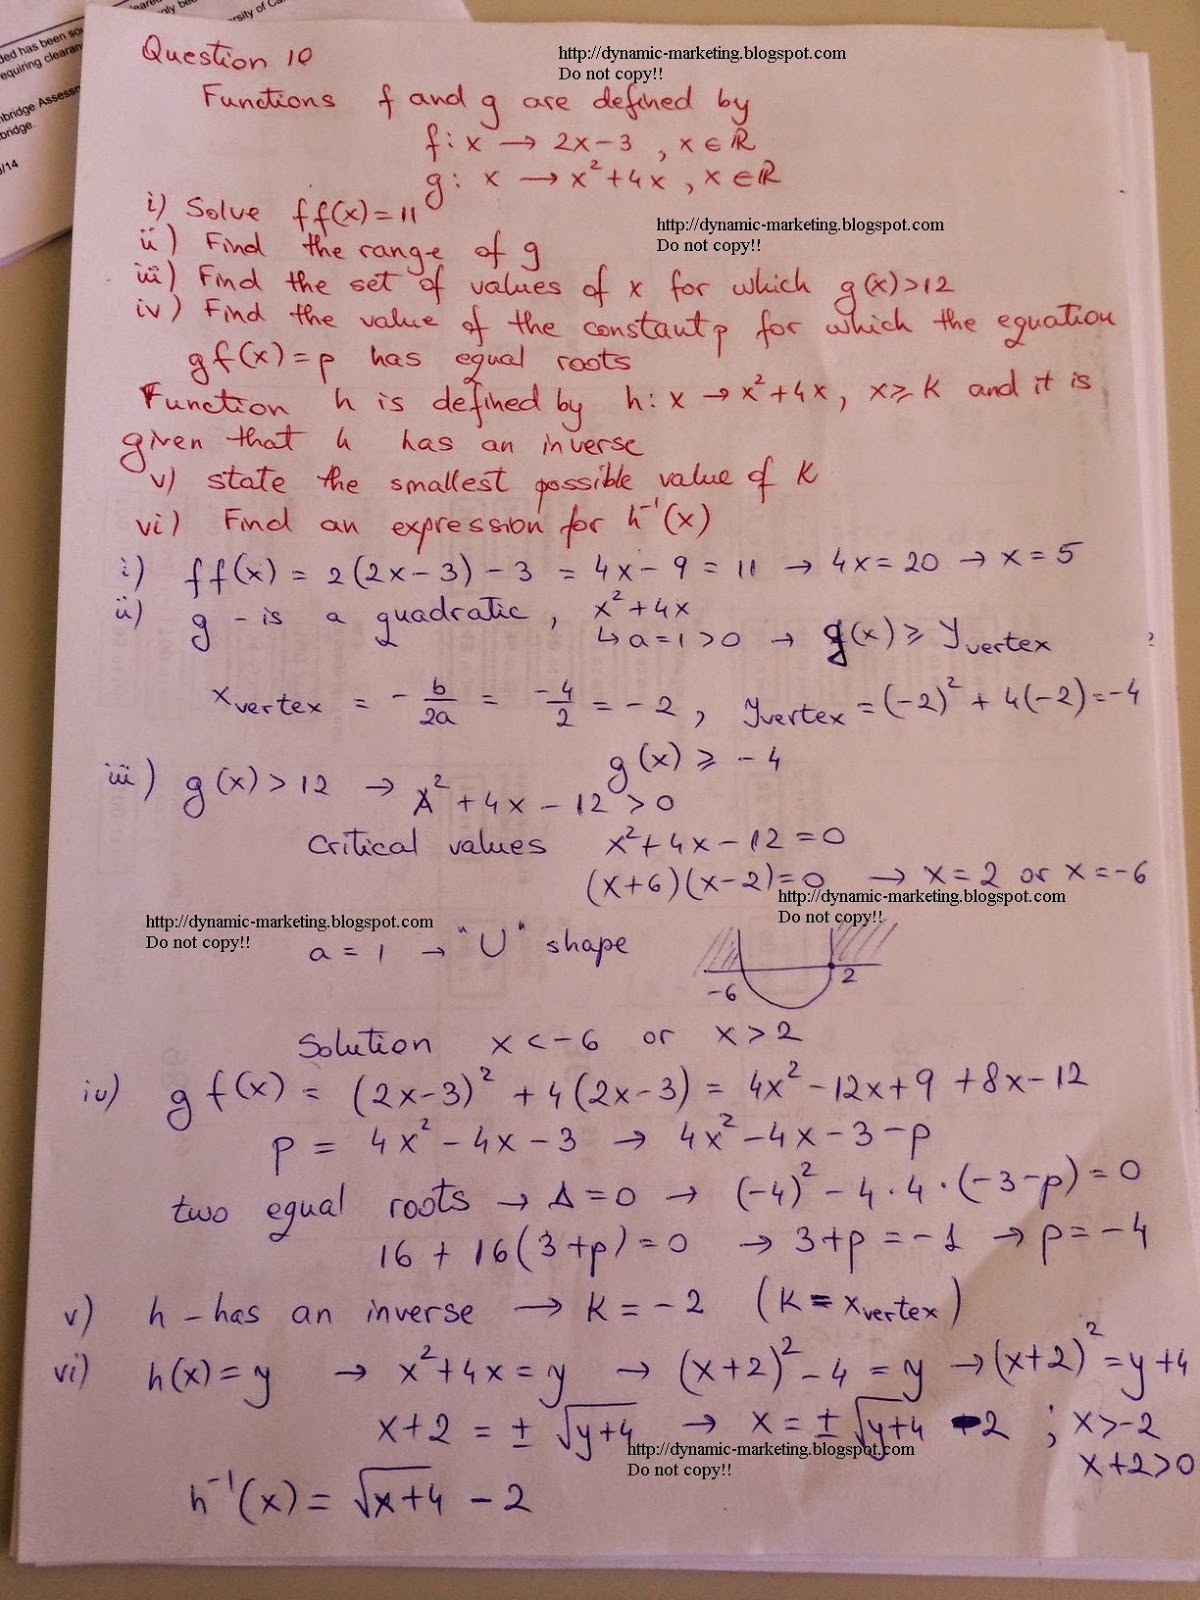 ded has been sou
equiring clearan
nbridge Assessm
bridge.
/14
Question 10
http://dynamic-marketing.blogspot.com
Do not copy!!
Functions f and g are defined by
f: x → 2x-3 , x ∈ ℝ
g: x → x²+4x , x ∈ ℝ
i) Solve ff(x)=11
http://dynamic-marketing.blogspot.com
Do not copy!!
ii) Find the range of g
iii) Find the set of values of x for which g(x)>12
iv) Find the value of the constant p for which the equation
gf(x)=p has equal roots
Function h is defined by h: x → x²+4x, x⩾k and it is
given that h has an inverse
v) state the smallest possible value of k
vi) Find an expression for h⁻¹(x)
i) ff(x) = 2(2x-3)-3 = 4x-9 = 11 → 4x=20 → x=5
ii) g - is a quadratic, x²+4x
↳ a=1>0 → g(x) ⩾ y vertex
x vertex = -b/2a = -4/2 = -2, y vertex = (-2)²+4(-2)=-4
g(x) ⩾ -4
iii) g(x)>12 → x²+4x-12>0
Critical values x²+4x-12=0
(x+6)(x-2)=0 → x=2 or x=-6
http://dynamic-marketing.blogspot.com
Do not copy!!
http://dynamic-marketing.blogspot.com
Do not copy!!
a=1 → "U" shape
-6 2
Solution x<-6 or x>2
iv) gf(x) = (2x-3)² + 4(2x-3) = 4x²-12x+9+8x-12
p = 4x²-4x-3 → 4x²-4x-3-p
two equal roots → Δ=0 → (-4)²-4·4·(-3-p)=0
16+16(3+p)=0 → 3+p=-1 → p=-4
v) h - has an inverse → k=-2 (k=x vertex)
vi) h(x)=y → x²+4x=y → (x+2)²-4=y → (x+2)²=y+4
x+2=±√y+4 → x=±√y+4 -2 ; x>-2
http://dynamic-marketing.blogspot.com
Do not copy!!
x+2>0
h⁻¹(x)=√x+4 -2